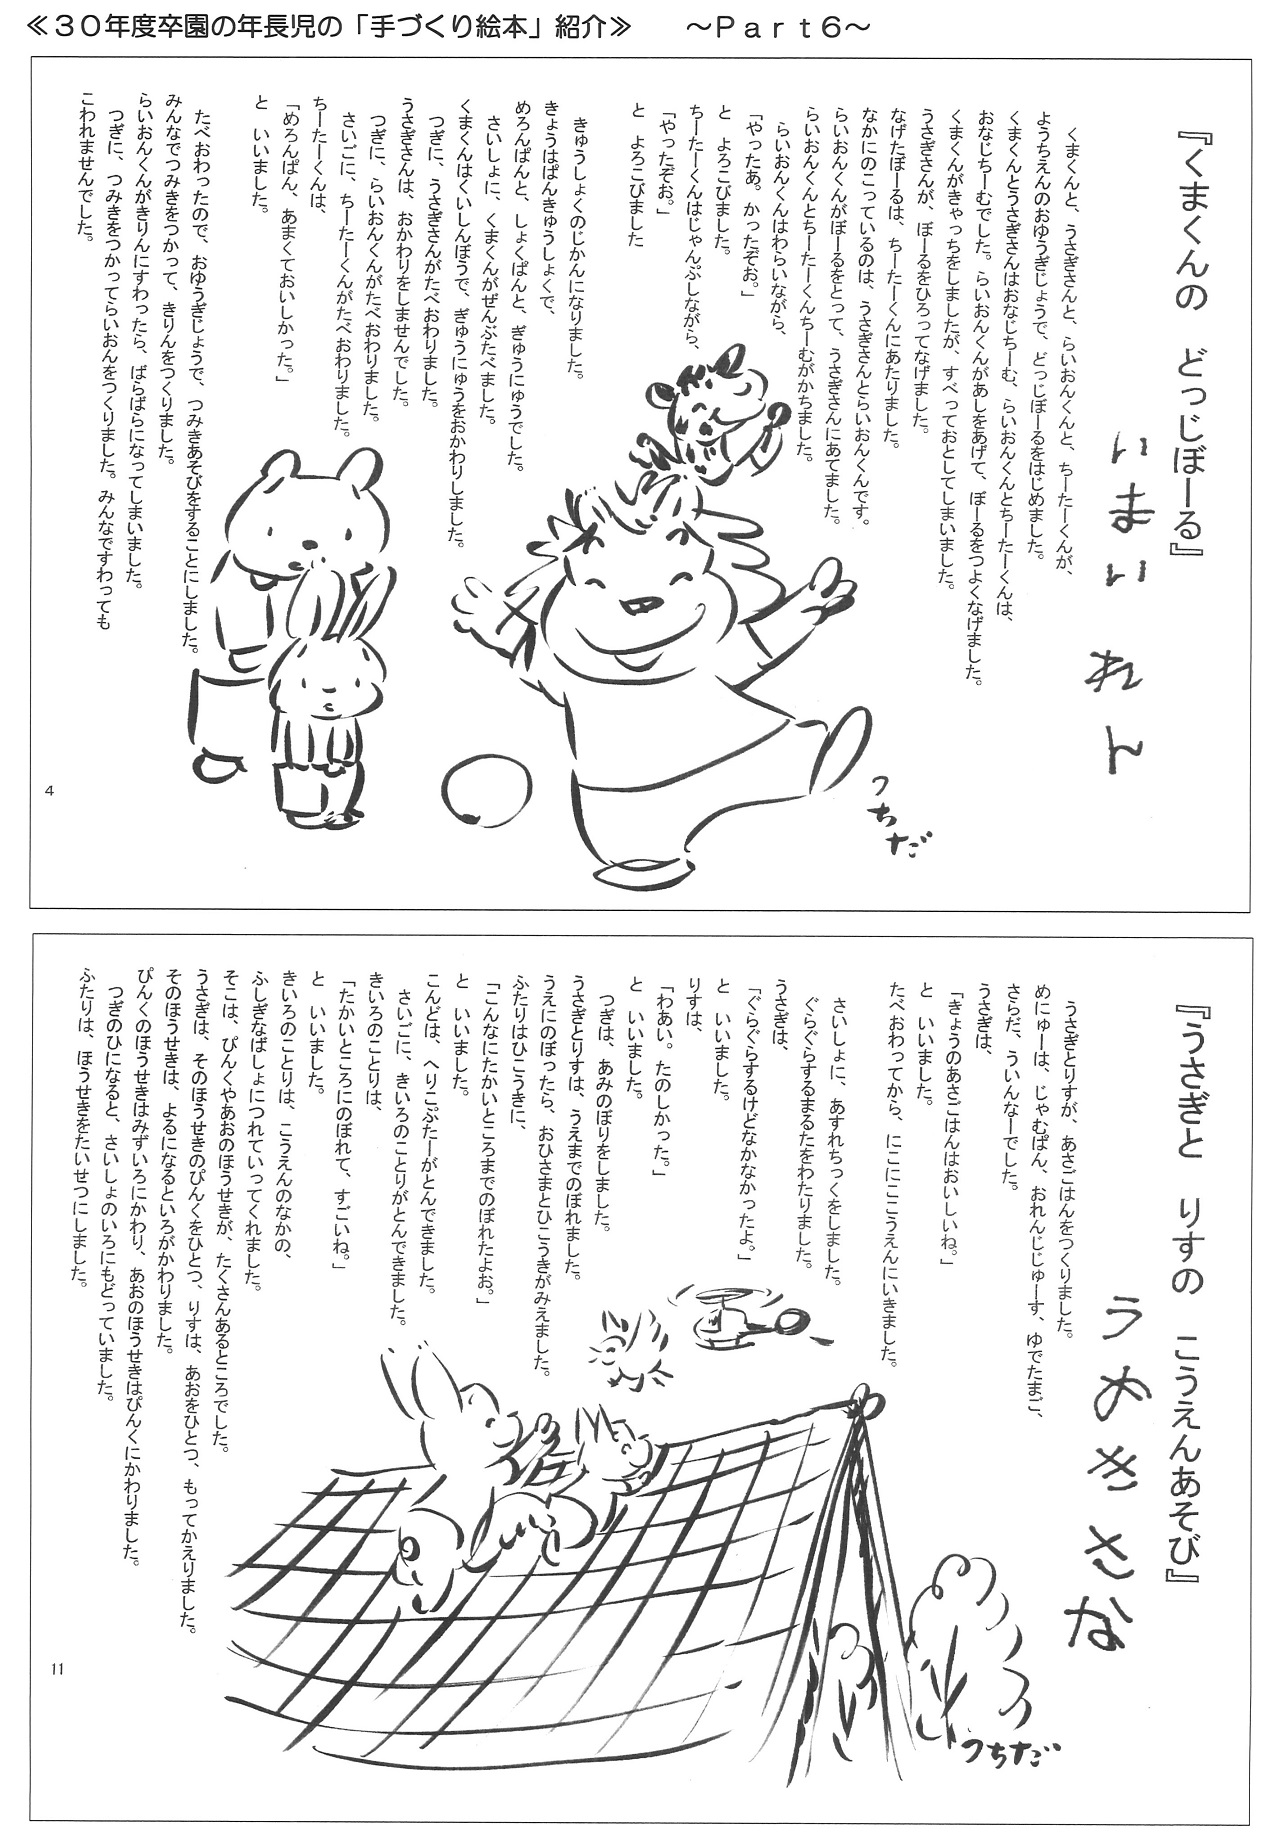 ≪３０年度卒園の年長児の「手づくり絵本」紹介≫　～Ｐａｒｔ６～
『くまくんの　どっじぼーる』
いまい　れん
くまくんと、うさぎさんと、らいおんくんと、ちーたーくんが、
ようちえんのおゆうぎじょうで、どっじぼーるをはじめました。
くまくんとうさぎさんはおなじちーむ、らいおんくんとちーたーくんは、
おなじちーむでした。らいおんくんがあしをあげて、ぼーるをつよくなげました。
くまくんがきゃっちをしましたが、すべっておとしてしまいました。
うさぎさんが、ぼーるをひろってなげました。
なげたぼーるは、ちーたーくんにあたりました。
なかにのこっているのは、うさぎさんとらいおんくんです。
らいおんくんがぼーるをとって、うさぎさんにあてました。
らいおんくんとちーたーくんちーむがかちました。
らいおんくんはわらいながら、
「やったあ。かったぞお。」
と　よろこびました。
ちーたーくんはじゃんぷしながら、
「やったぞお。」
と　よろこびました
きゅうしょくのじかんになりました。
きょうはぱんきゅうしょくで、
めろんぱんと、しょくぱんと、ぎゅうにゅうでした。
さいしょに、くまくんがぜんぶたべました。
くまくんはくいしんぼうで、ぎゅうにゅうをおかわりしました。
つぎに、うさぎさんがたべおわりました。
うさぎさんは、おかわりをしませんでした。
つぎに、らいおんくんがたべおわりました。
さいごに、ちーたーくんがたべおわりました。
ちーたーくんは、
「めろんぱん、あまくておいしかった。」
と　いいました。
たべおわったので、おゆうぎじょうで、つみきあそびをすることにしました。
みんなでつみきをつかって、きりんをつくりました。
らいおんくんがきりんにすわったら、ばらばらになってしまいました。
つぎに、つみきをつかってらいおんをつくりました。みんなですわっても
こわれませんでした。
つちだ
4
『うさぎと　りすの　こうえんあそび』
うめき　さな
うさぎとりすが、あさごはんをつくりました。
めにゅーは、じゃむぱん、おれんじじゅーす、ゆでたまご、
さらだ、ういんなーでした。
うさぎは、
「きょうのあさごはんはおいしいね。」
と　いいました。
たべおわってから、にこにここうえんにいきました。
さいしょに、あすれちっくをしました。
ぐらぐらするまるたをわたりました。
うさぎは、
「ぐらぐらするけどなかなかったよ。」
と　いいました。
りすは、
「わあい。たのしかった。」
と　いいました。
つぎは、あみのぼりをしました。
うさぎとりすは、うえまでのぼれました。
うえにのぼったら、おひさまとひこうきがみえました。
ふたりはひこうきに、
「こんなにたかいところまでのぼれたよお。」
と　いいました。
こんどは、へりこぷたーがとんできました。
さいごに、きいろのことりがとんできました。
きいろのことりは、
「たかいところにのぼれて、すごいね。」
と　いいました。
きいろのことりは、こうえんのなかの、
ふしぎなばしょにつれていってくれました。
そこは、ぴんくやあおのほうせきが、たくさんあるところでした。
うさぎは、そのほうせきのぴんくをひとつ、りすは、あおをひとつ、もってかえりました。
そのほうせきは、よるになるといろがかわりました。
ぴんくのほうせきはみずいろにかわり、あおのほうせきはぴんくにかわりました。
つぎのひになると、さいしょのいろにもどっていました。
ふたりは、ほうせきをたいせつにしました。
つちだ
11